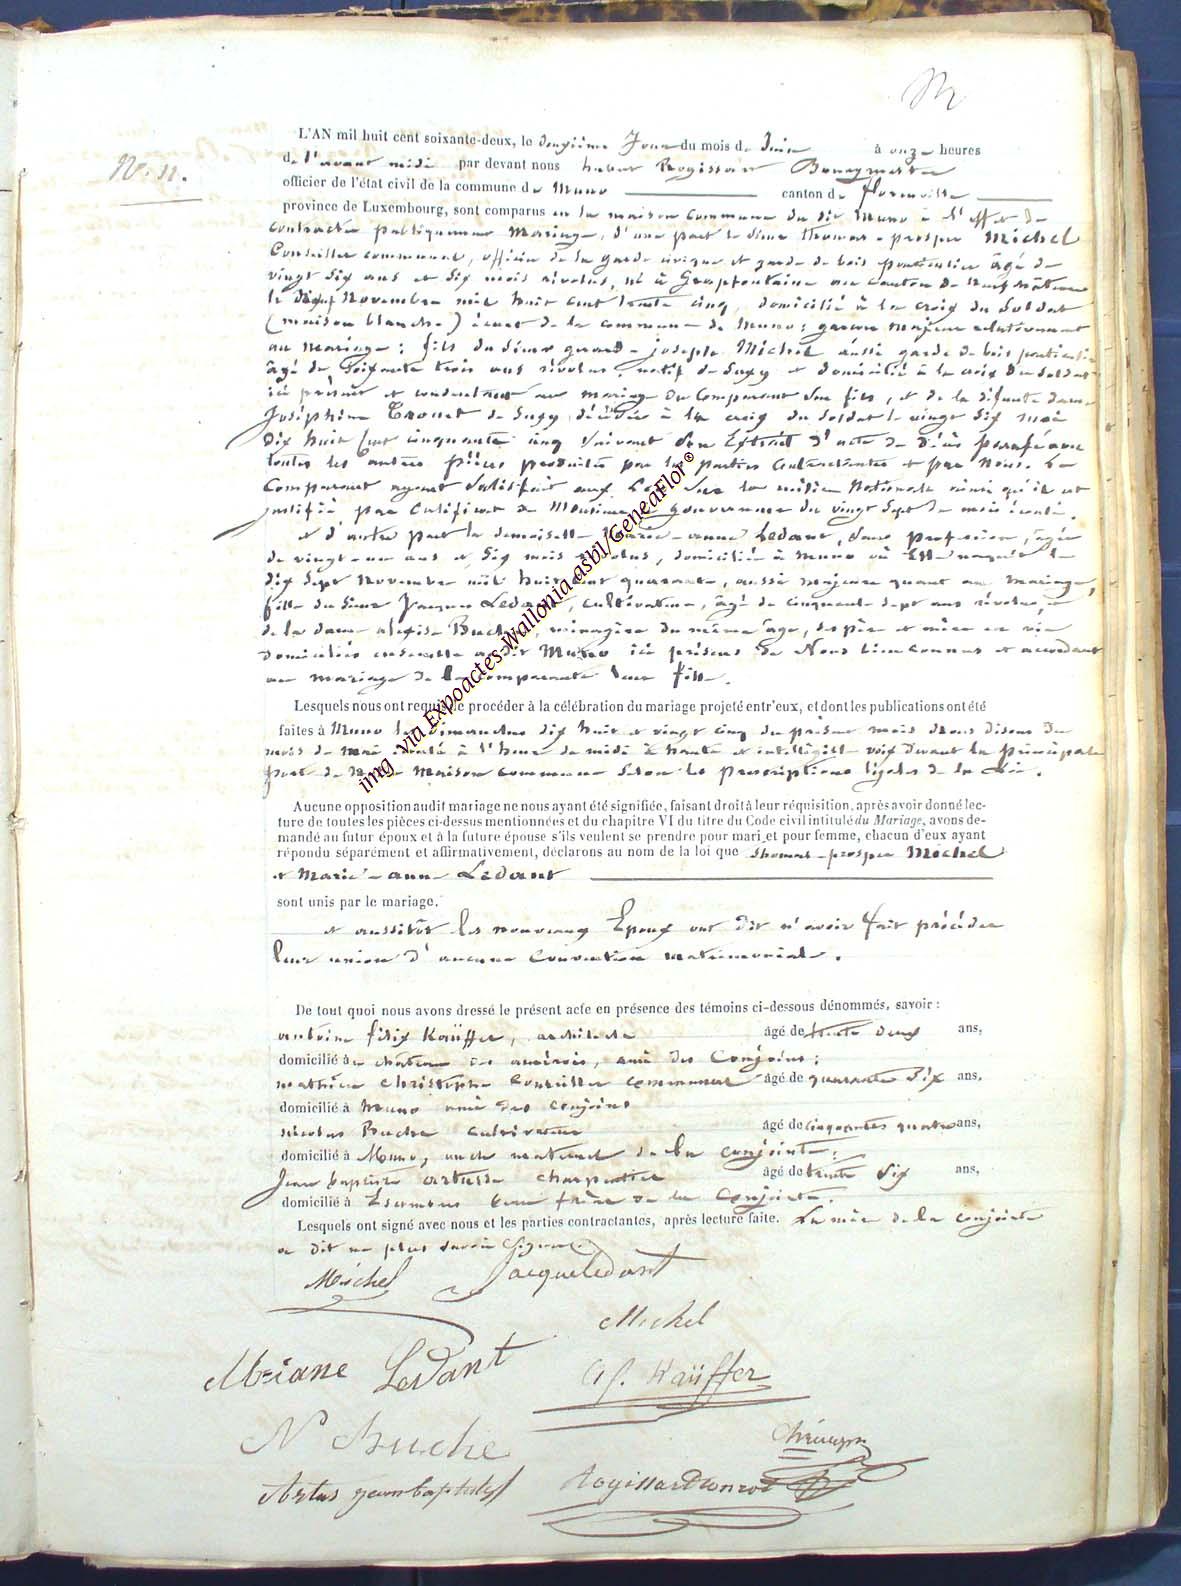 N°. 11.
L'AN mil huit cent soixante-deux, le deuxième Jour du mois de Juin à onze heures
de l'avant midi par devant nous hubert Rogissart Bourgmestre
officier de l'état civil de la commune de Muno canton de florenville
province de Luxembourg, sont comparus en la maison commune du dit Muno à l'effet de
contracter publiquement Mariage, d'une part le sieur thomas-prosper Michel
Conseiller communal, officier de la garde civique et garde de bois particulier âgé de
vingt six ans et six mois révolus, né à Grapfontaine au canton de Neufchâteau
le Novembre mil huit cent trente cinq, domicilié à la croix du Soldat
(maison blanche) écart de la commune de Muno; garçon majeur relativement
au mariage; fils du sieur joseph Michel aussi garde de bois particulier
âgé de soixante trois ans révolus, natif de Suxy et domicilié à la croix du soldat
ici présent et consentant au mariage du Comparant son fils, et de la défunte dame
Joséphine Trouet de Suxy, décédée à la croix du soldat le vingt six mai
dix huit Cent cinquante cinq suivant son Extrait d'acte de décès parafé avec
toutes les autres pièces produites par les parties contractantes et par Nous. Le
Comparant ayant satisfait aux Lois sur la milice Nationale ainsi qu'il est
justifié par Certificat de Monsieur le gouverneur du vingt sept de mois écoulé.
et d'autre part la demoiselle Marie-anne Ledant, sans profession, âgée
de vingt-un ans et six mois révolus, domiciliée à Muno où Elle naquit le
dix sept Novembre mil huit cent quarante, aussi majeure quant au mariage,
fille du sieur Jacques Ledant, cultivateur, âgé de cinquante sept ans révolus, et
de la dame Buche, ménagère du même âge, ses père et mère en vie
domiciliés ensemble au dit Muno ici présens de Nous bien connus et accordant
au mariage de la comparante leur fille.
Lesquels nous ont requis de procéder à la célébration du mariage projeté entr'eux, et dont les publications ont été
faites à Muno les dimanches dix huit et vingt cinq du présent mois Nous disons du
mois de mai écoulé à l'heure de midi à haute et intelligible voix devant la principale
porte de Notre Maison commune selon les prescriptions légales de la Loi.
Aucune opposition audit mariage ne nous ayant été signifiée, faisant droit à leur réquisition, après avoir donné lec-
ture de toutes les pièces ci-dessus mentionnées et du chapitre VI du titre du Code civil intitulé du Mariage, avons de-
mandé au futur époux et à la future épouse s'ils veulent se prendre pour mari et pour femme, chacun d'eux ayant
répondu séparément et affirmativement, déclarons au nom de la loi que thomas-prosper Michel
et Marie-anne Ledant
sont unis par le mariage.
et aussitôt les nouveaux Epoux ont dit n'avoir fait précéder
leur union d'aucune Convention matrimoniale.
De tout quoi nous avons dressé le présent acte en présence des témoins ci-dessous dénommés, savoir :
antoine félix Kaüffer, architecte âgé de trente deux ans,
domicilié au château des amérois, ami des Conjoins;
Christophe Conseiller communal âgé de quarante six ans,
domicilié à Muno ami des conjoins
nicolas Buche cultivateur âgé de cinquantes quatre ans,
domicilié à Muno, oncle maternel de la conjointe;
Jean baptiste artus charpentier âgé de trente six ans,
domicilié à Escombres beau frère de la Conjointe.
Lesquels ont signé avec nous et les parties contractantes, après lecture faite. La mère de la conjointe
a dit ne plus savoir signer.
Michel Jacque Ledant
Michel
Mriane Ledant
Af. Kaüffer
N Buche
Artus jean baptiste
img via Expoactes-Wallonia asbl/GeneaFlor®